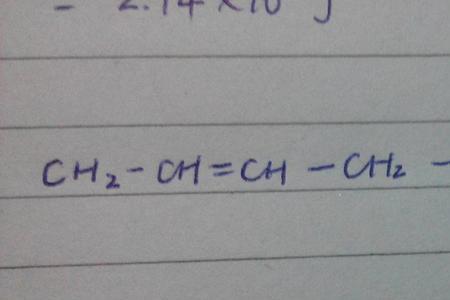 = 2.14 x 10 J
CH₂-CH=CH-CH₂-